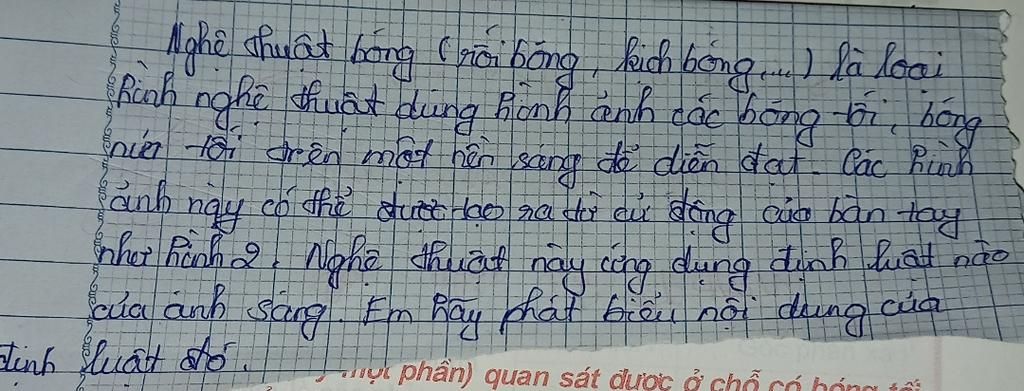 Nghệ thuật bóng (rối bóng, kịch bóng,...) là loại
hình nghệ thuật dùng hình ảnh các bóng tối, bóng
nửa tối trên một nền sáng để diễn đạt. Các hình
ảnh này có thể được tạo ra từ cử động của bàn tay
như hình 2. Nghệ thuật này ứng dụng định luật nào
của ánh sáng. Em hãy phát biểu nội dung của
định luật đó.
một phần) quan sát được ở chỗ có bóng tối